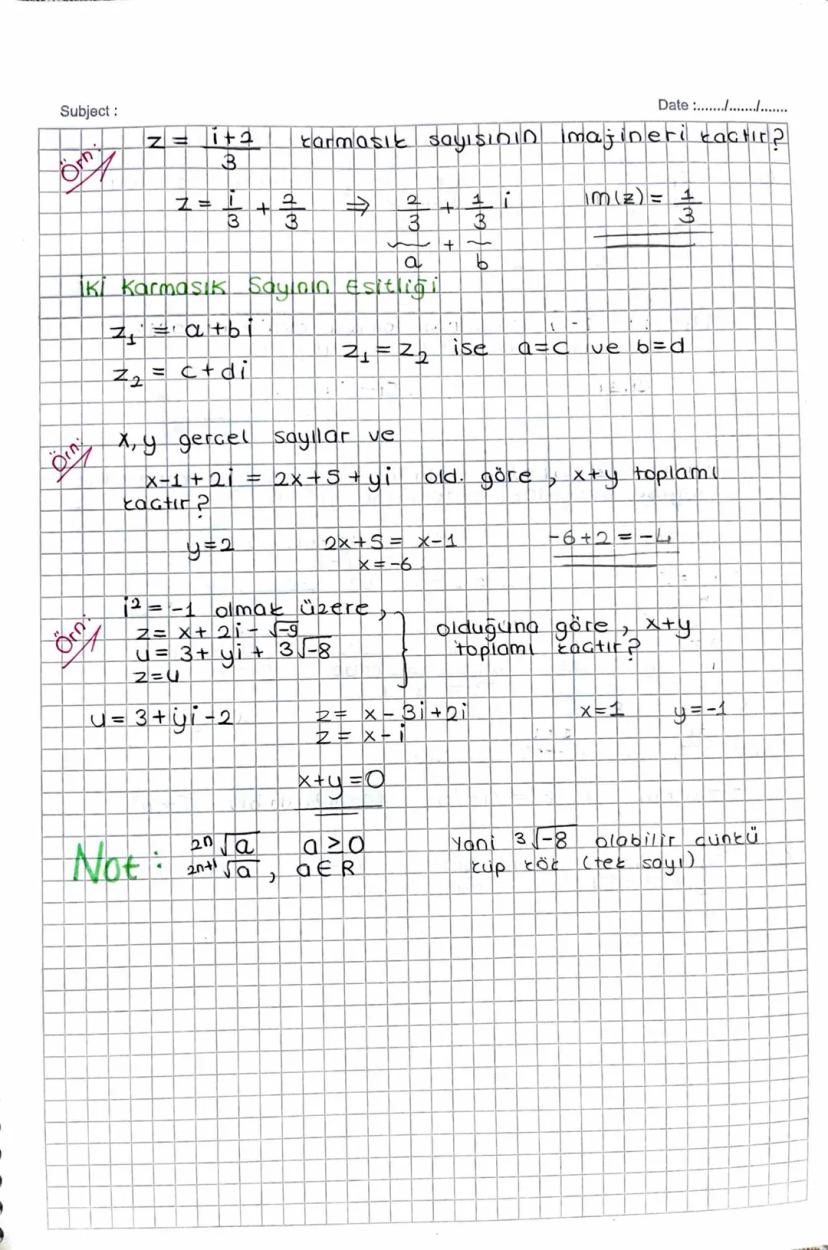 Subject :
Date :......./......./.......
Örn: z = i+2/3 karmaşık sayısının imajineri kaçtır?
z = i/3 + 2/3 ⇒ 2/3 + 1/3 i Im(z) = 1/3
a + b
İki Karmaşık Sayının Eşitliği
z₁ = a+bi
z₁ = z₂ ise a=c ve b=d
z₂ = c+di
Örn: x, y gerçel sayılar ve
x-1+2i = 2x+5+yi old. göre, x+y toplamı
kaçtır?
y=2 2x+5 = x-1 -6+2 = -4
x=-6
Örn: i² = -1 olmak üzere,
z = x+2i-√-9
u = 3+yi+ 3√-8
z=u
olduğuna göre, x+y
toplamı kaçtır?
u = 3+yi-2 z = x-3i+2i x=1 y=-1
z = x-i
x+y=0
Not: 2n√a a≥0 Yani 3√-8 olabilir çünkü
2n+1√a, a∈R küp kök (tek sayı)